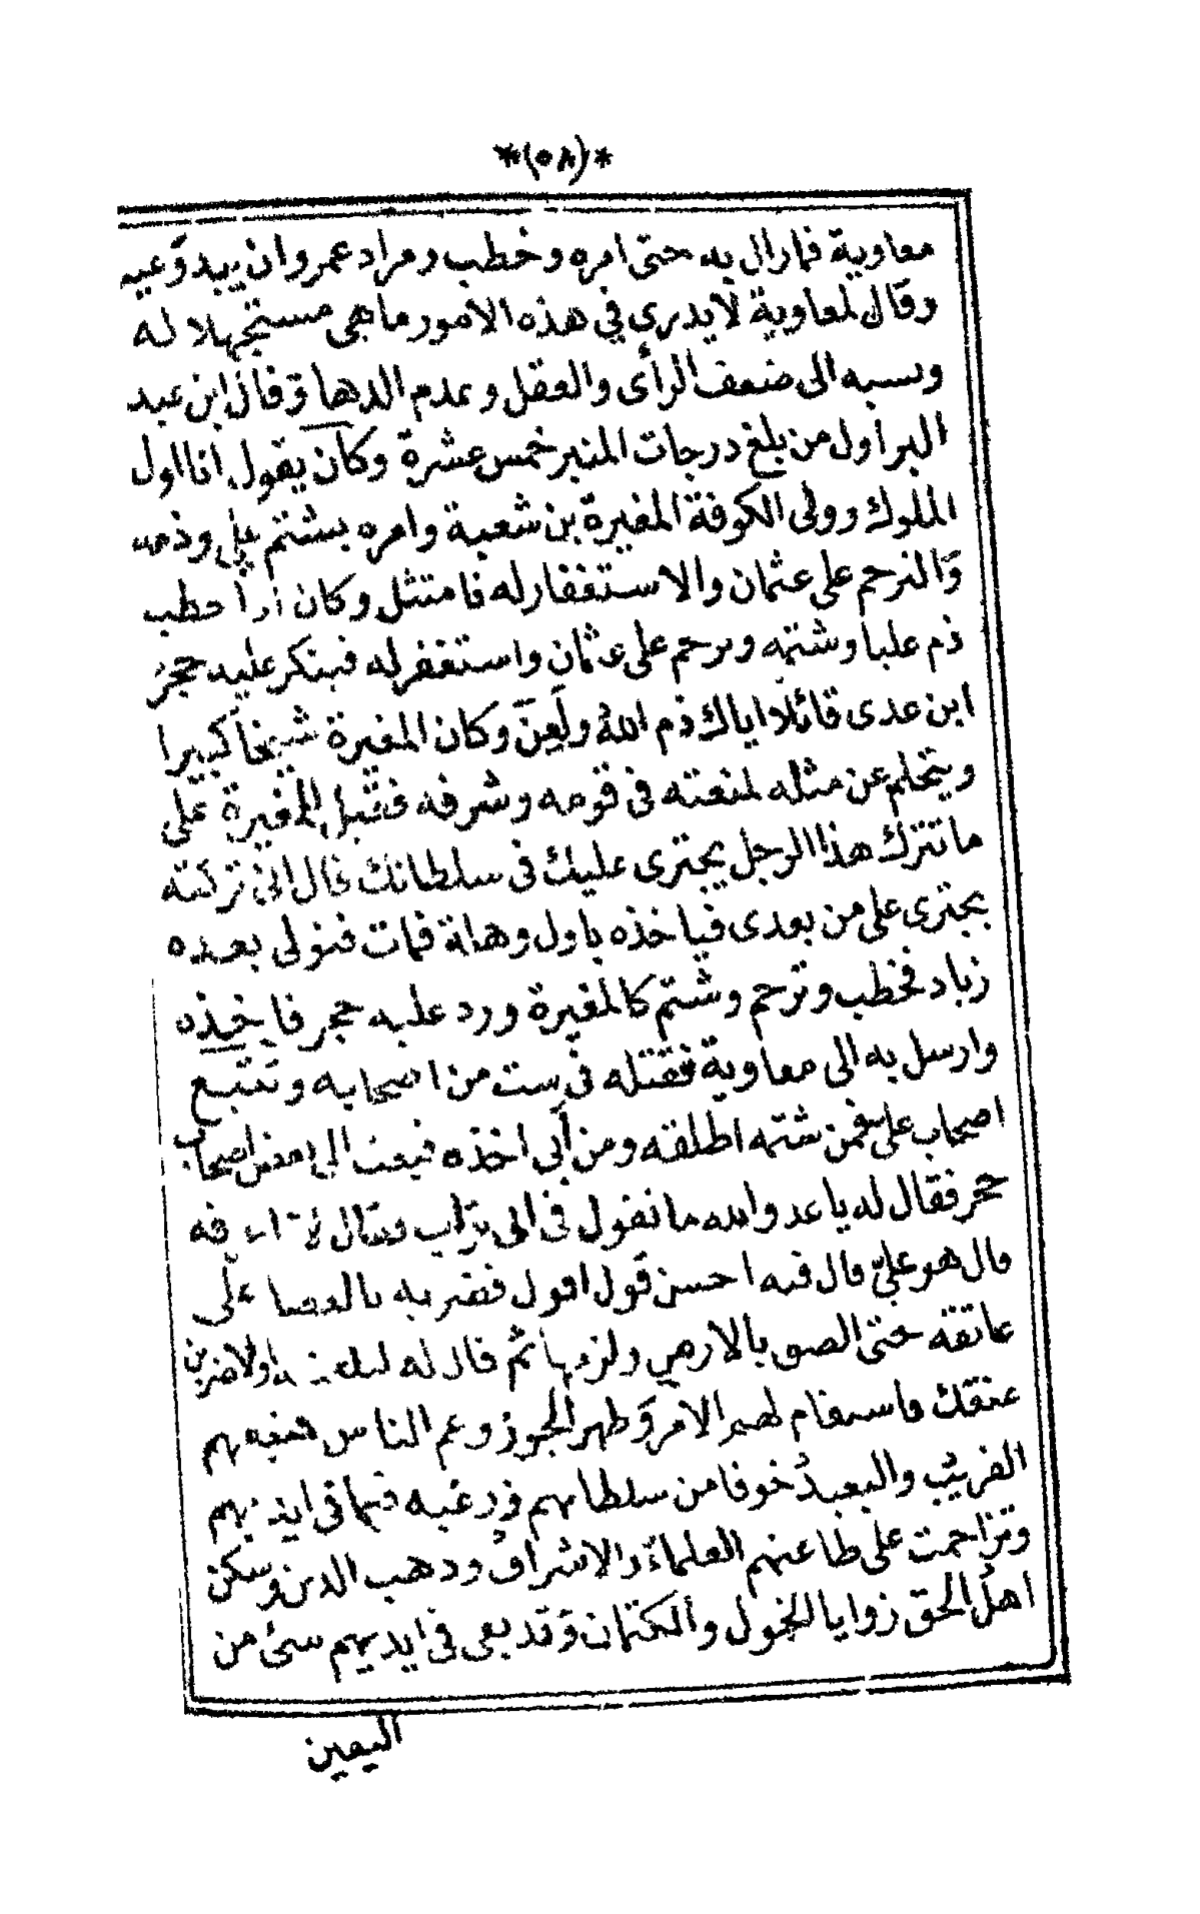 *(٥٨)*
معاوية فمازال به حتى امره وخطب ومراد عمروان يبدوعيه
وقال لمعاوية لايدرى فى هذه الامور ماهى مستجهلا له
ونسبه الى ضعف الرأى والعقل وعدم الدهاء وقال ابن عبد
البر اول من بلغ درجات المنبر خمس عشرة وكان يقول انا اول
الملوك وولى الكوفة المغيرة بن شعبة وامره بشتم على وذمه
والترحم على عثمان والاستغفارله فامتثل وكان اذا خطب
ذم عليا وشتمه وترحم على عثمان واستغفرله فينكر عليه حجر
ابن عدى قائلا اياك ذم الله ولعن وكان المغيرة شيخا كبيرا
ويتحلم عن مثله لمنعته فى قومه وشرفه فقيل المغيرة على
ماتترك هذا الرجل يجترى عليك فى سلطانك قال انى تركته
يجترى على من بعدى فياخذه باول وهلة فمات فتولى بعده
زياد فخطب وترحم وشتم كالمغيرة ورد عليه حجر فاخذه
وارسل به الى معاوية فقتله فى ست من اصحابه وتتبع
اصحاب على فمن شتمه اطلقه ومن أبى اخذه فبعث الى بعض اصحاب
حجر فقال له ياعدو الله ماتقول فى ابى تراب وقال لا فه
قال هو على قال فيه احسن قول اقول فضربه بالعصا على
عاتقه حتى الصق بالارض ولزمها ثم قال له لتلعننه اولاضربن
عنقك فاستقام لهم الامر وظهر الجور وعم الناس فتنتهم
القريب والبعيد خوفا من سلطانهم ورغبه فيما فى ايديهم
وتزاحمت على طاعتهم العلماء والاشراف وذهب الدين وسكن
اهل الحق زوايا الخمول والكتمان وقد بقى فى ايديهم شئ من
اليقين